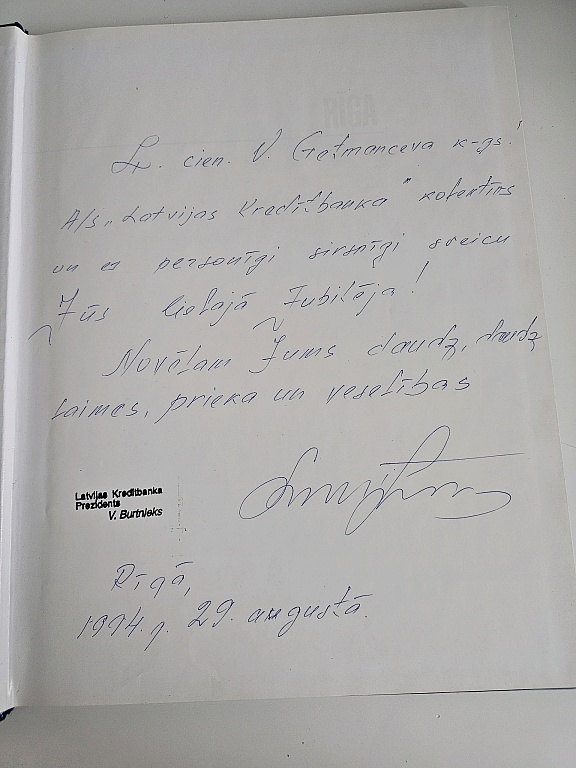 RĪGA
Ļ. cien. V. Getmanceva k-gs!
A/s „Latvijas Kredītbanka" kolektīvs
un es personīgi sirsnīgi sveicu
Jūs lielajā Jubilejā!
Novēlam Jums daudz, daudz
laimes, prieka un veselības
Latvijas Kredītbanka
Prezidents
V. Burtnieks
Rīgā,
1994.g. 29. augustā.